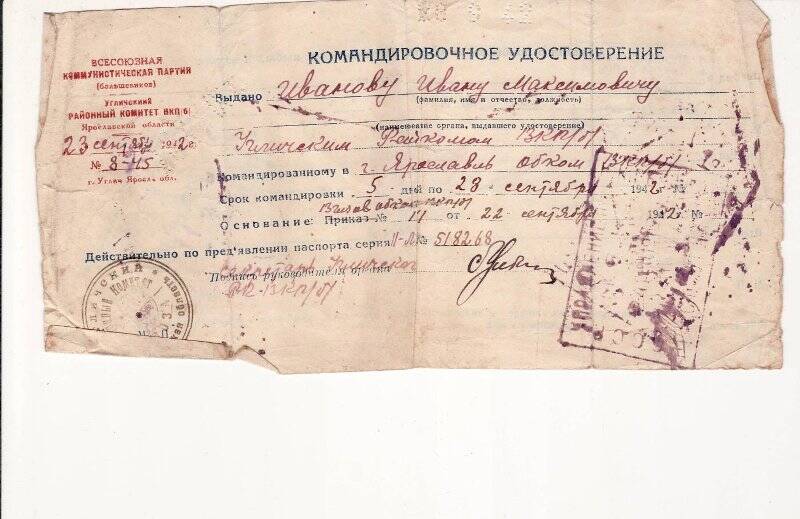 ВСЕСОЮЗНАЯ
КОММУНИСТИЧЕСКАЯ ПАРТИЯ
(большевиков)
Угличский
РАЙОННЫЙ КОМИТЕТ ВКП(б)
Ярославской области
23 сентября 1942 г.
№ 8-45
г. Углич Яросл. обл.
КОМАНДИРОВОЧНОЕ УДОСТОВЕРЕНИЕ
Выдано Иванову Ивану Максимовичу
(фамилия, имя и отчество, должность)
Угличским Райкомом ВКП/б/
(наименование органа, выдавшего удостоверение)
Командированному в г. Ярославль обком ВКП/б/
Срок командировки 5 дней по 28 сентября 1942 г.
Вызов обкома ВКП/б/
Основание: Приказ № 14 от 22 сентября 1942 г. №
Действительно по пред'явлении паспорта серия № 518268
Подпись руководителя органа
Угличского
РК-ВКП/б/
М. П.
УПРАВЛЕНИЕ